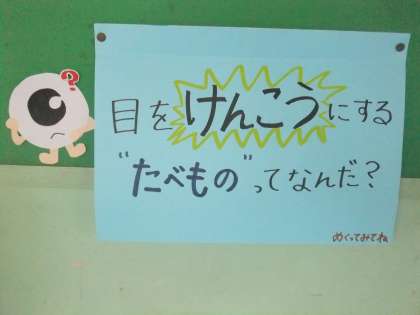 ?
目をけんこうにする
"たべもの"ってなんだ?
めくってみてね